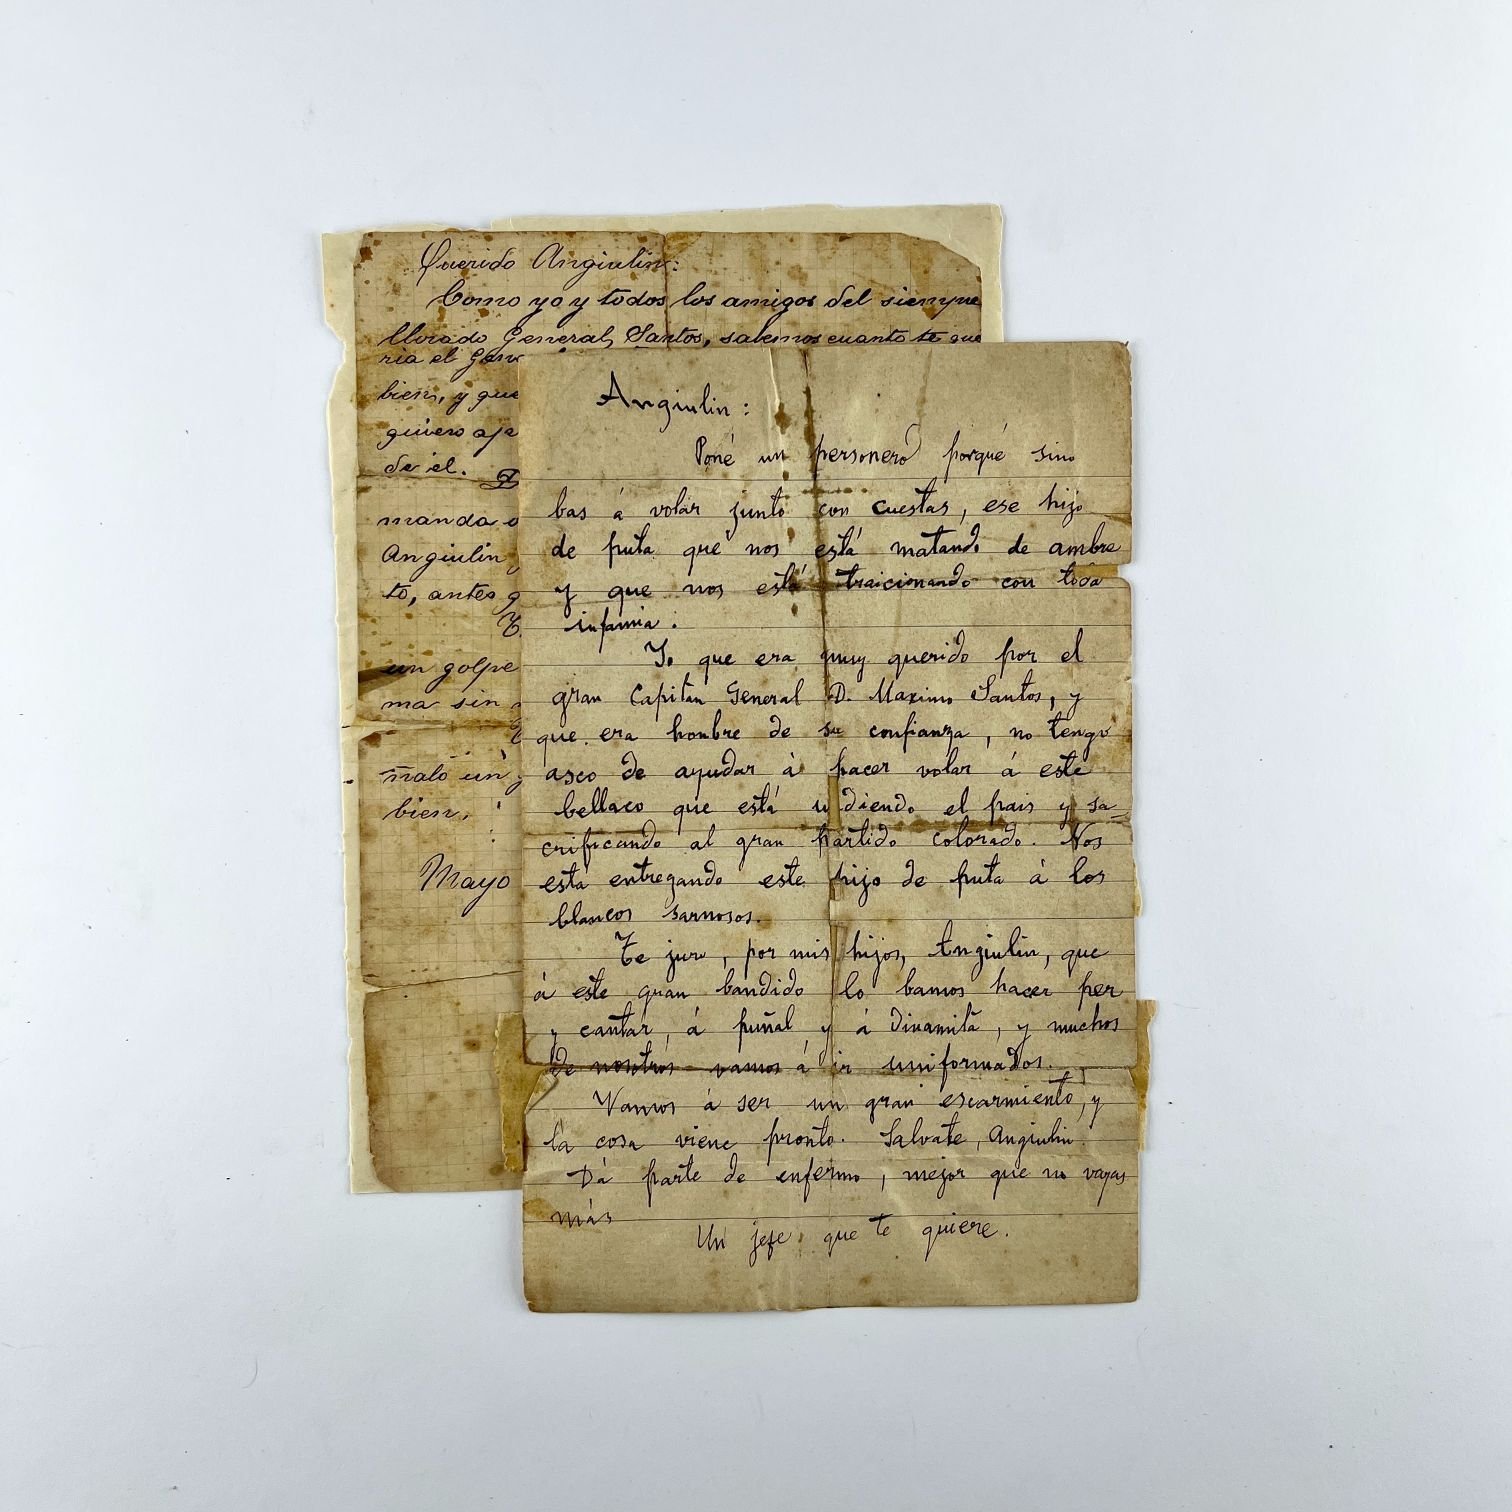 Querido Angiulin:
Como yo y todos los amigos del siempre
llorado General Santos, sabemos cuanto te que
ria el Gene
bien, y que
quiero aja
de él.
manda
Angiulin
to, antes q
un golpe
ma sin
malo un
bien.
Mayo
Angiulin:
Poné un personero porqué sino
bas á volar junto con cuestas, ese hijo
de puta qué nos está matando de ambre
y que nos está traicionando con toda
infamia.
Yo que era muy querido por el
gran Capitan General D. Maximo Santos, y
que era honbre de su confianza, no tengo
asco de ayudar à hacer volar á este
bellaco que está u diendo el pais y sa-
crificando al gran partido colorado. Nos
está entregando este hijo de puta á los
blancos sarnosos.
Te juro, por mis hijos, Angiulin, que
á este gran bandido lo bamos hacer per
y cantar, á puñal y á dinamita, y muchos
de nosotros vamos á ir uniformados.
Vamos á ser un gran escarmiento, y
la cosa viene pronto. Salvate, Angiulin.
Dá parte de enfermo, mejor que no vayas
más
Un jefe que te quiere.